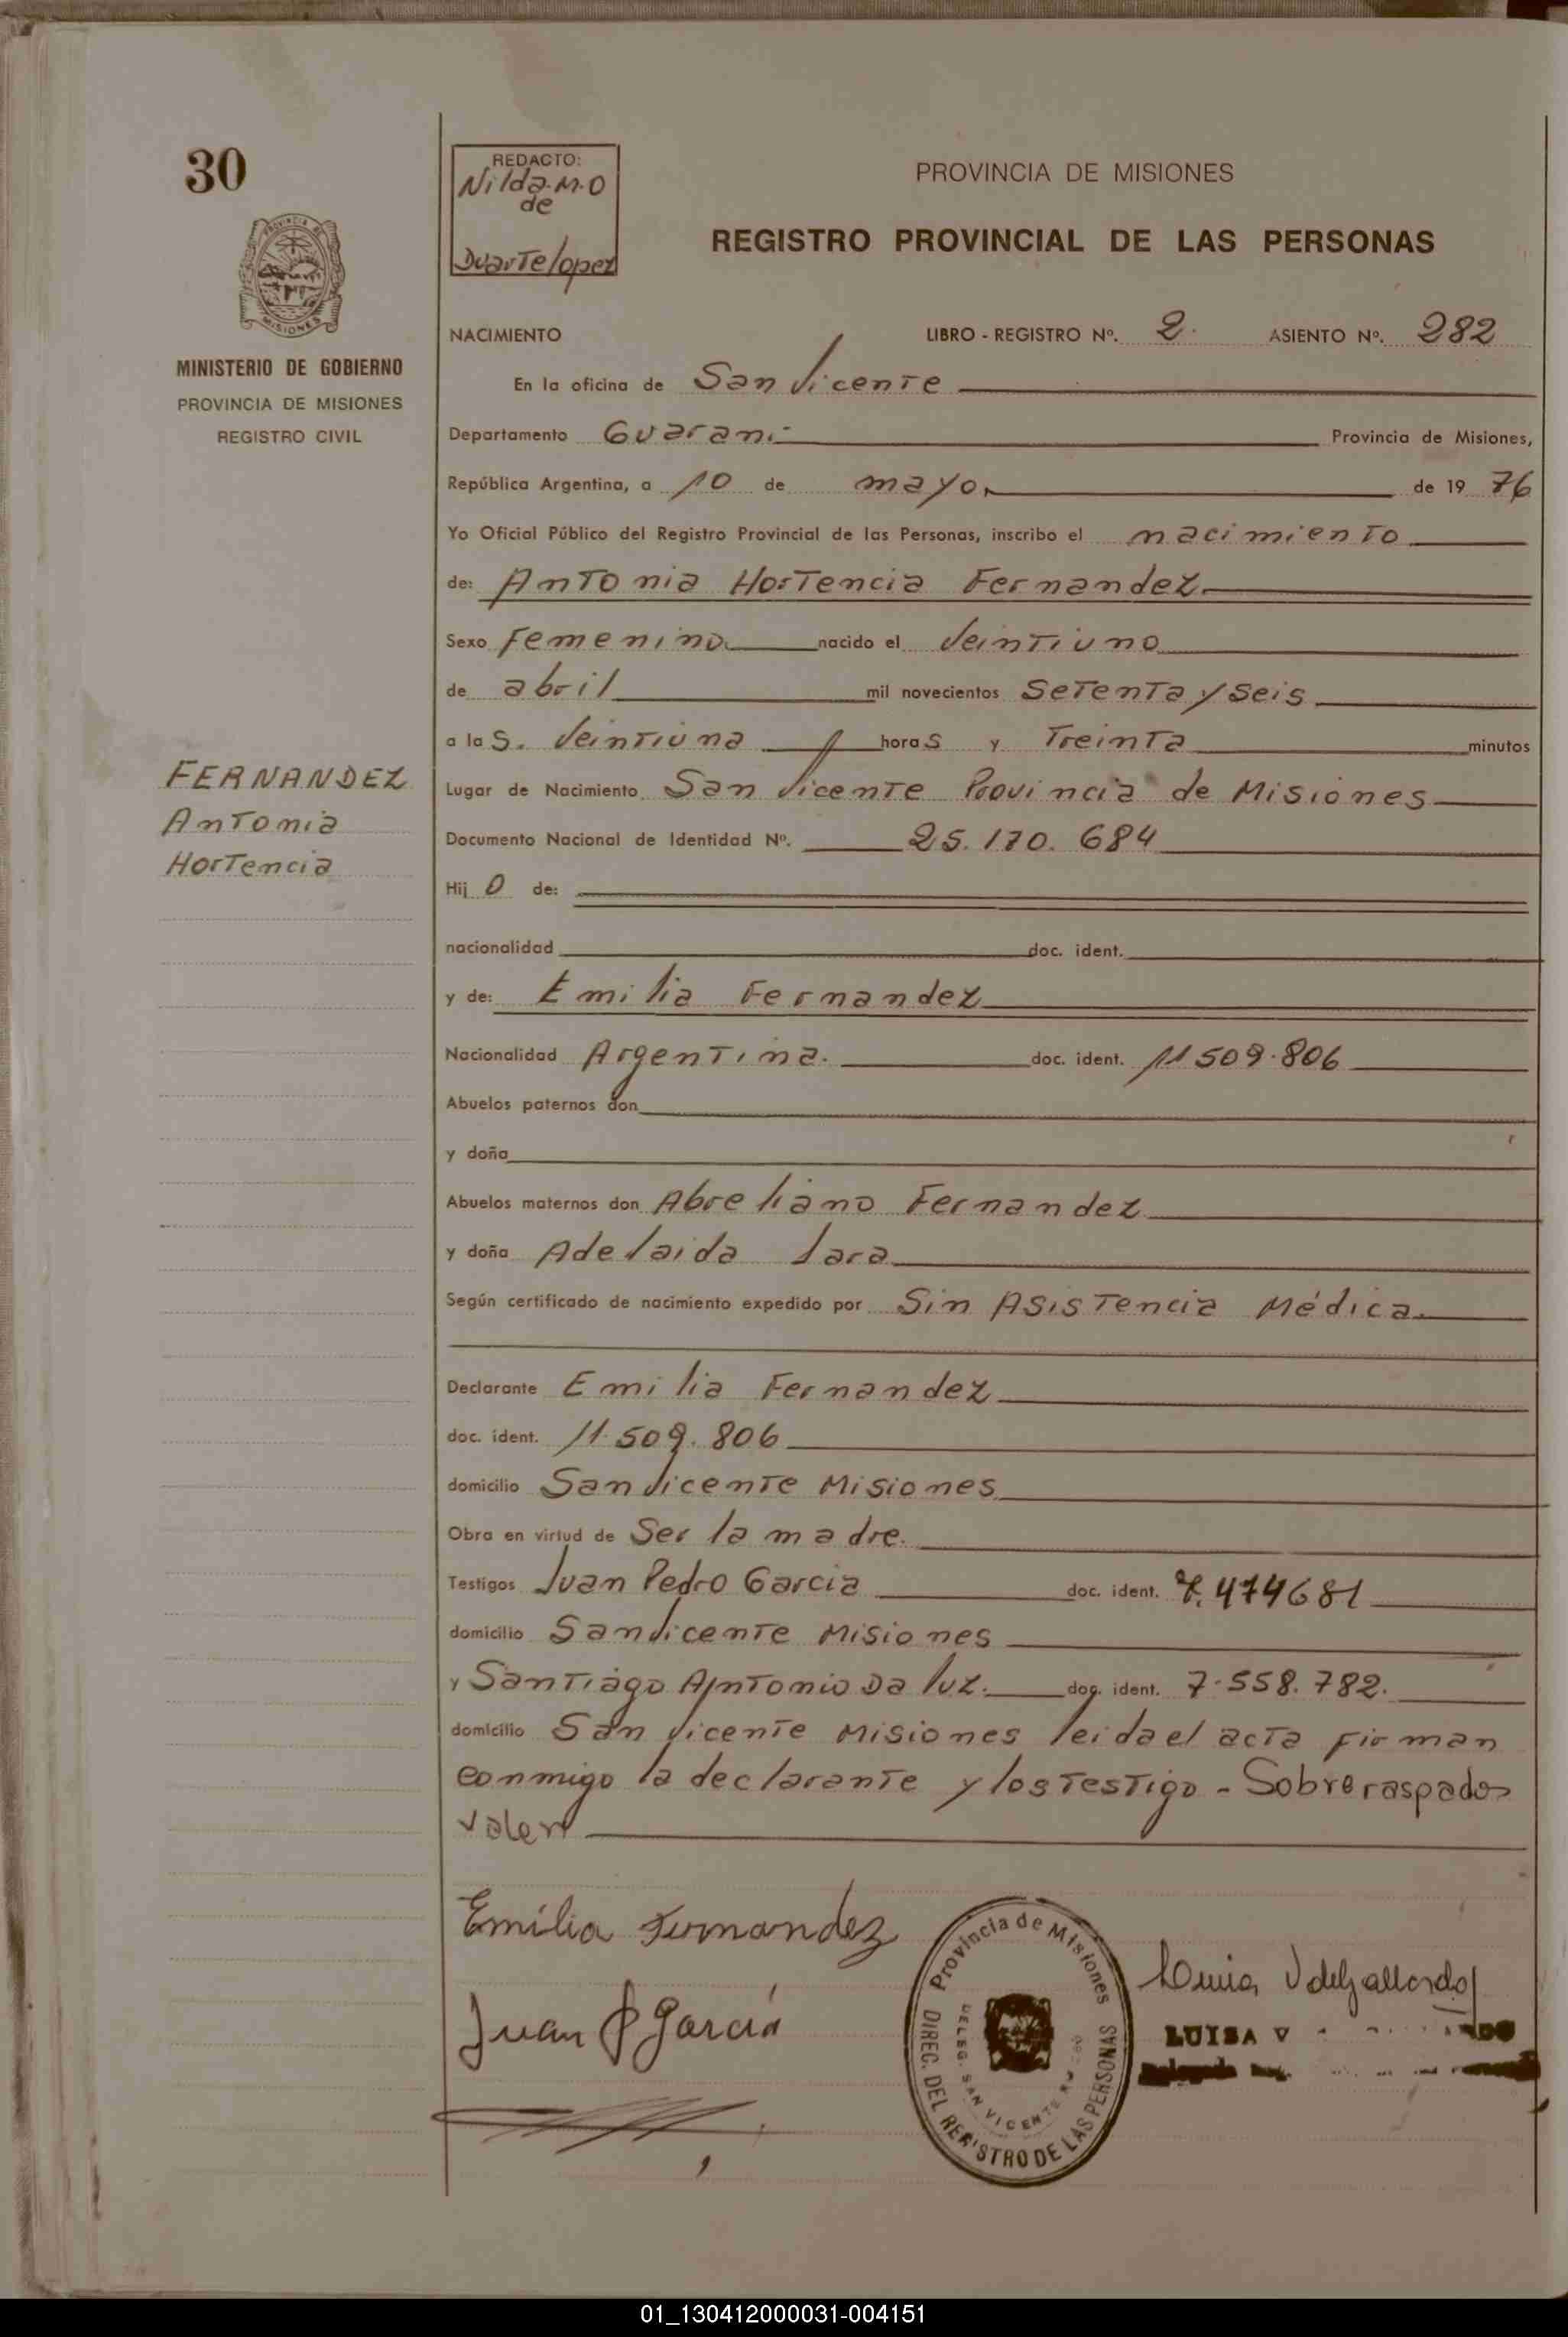 30
REDACTO:
Nilda.M.O
de
Duarte lopez
PROVINCIA DE MISIONES
REGISTRO PROVINCIAL DE LAS PERSONAS
PROVINCIA DE
MISIONES
MINISTERIO DE GOBIERNO
PROVINCIA DE MISIONES
REGISTRO CIVIL
NACIMIENTO LIBRO - REGISTRO Nº. 2. ASIENTO Nº. 282
En la oficina de San Vicente
Departamento Guaraní Provincia de Misiones,
República Argentina, a 10 de mayo de 1976
Yo Oficial Público del Registro Provincial de las Personas, inscribo el nacimiento
de: Antonia Hortencia Fernandez
Sexo Femenino nacido el Veintiuno
de abril mil novecientos Setenta y Seis
a las. Veintiuna horas y Treinta minutos
FERNANDEZ
Antonia
Hortencia
Lugar de Nacimiento San Vicente Provincia de Misiones
Documento Nacional de Identidad Nº. 25.170.684
Hij O de:
nacionalidad doc. ident.
y de: Emilia Fernandez
Nacionalidad Argentina. doc. ident. 11509.806
Abuelos paternos don
y doña
Abuelos maternos don Abreliano Fernandez
y doña Adelaida Lara
Según certificado de nacimiento expedido por Sin Asistencia Médica.
Declarante Emilia Fernandez
doc. ident. 11.509.806
domicilio San Vicente Misiones
Obra en virtud de Ser la madre.
Testigos Juan Pedro Garcia doc. ident. 7.474681
domicilio San Vicente Misiones
y Santiago Antonio Da luz. doc. ident. 7.558.782.
domicilio San Vicente Misiones leida el acta firman
conmigo la declarante y los testigo - Sobreraspados
valen
Emilia Fernandez
Juan P Garcia
Provincia de Misiones
DIREC. DEL REGISTRO DE LAS PERSONAS
DELEG. SAN VICENTE
LUISA V
01_130412000031-004151